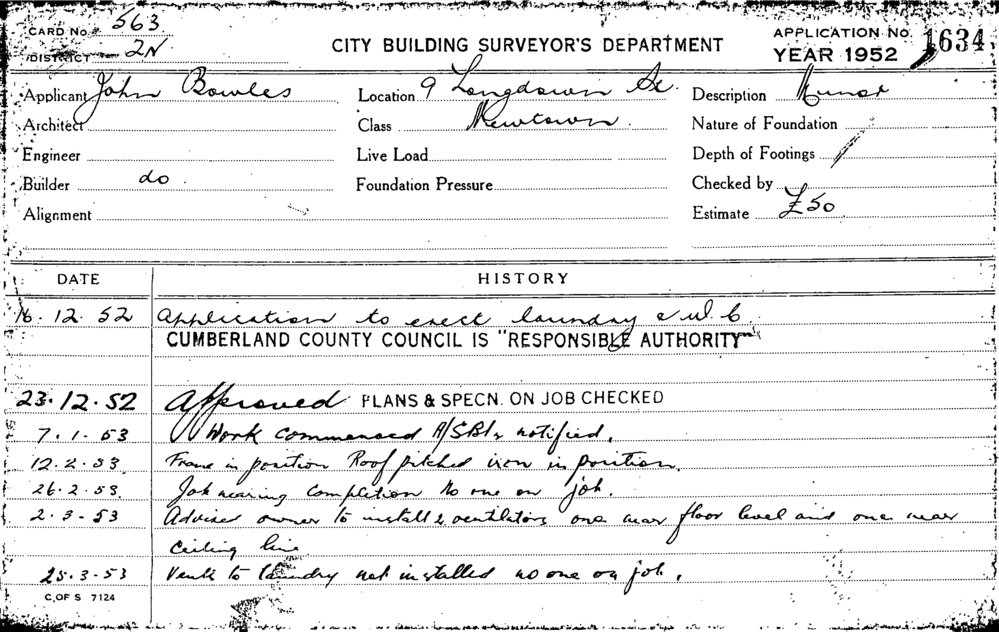 CARD No. 563
DISTRICT 2N
CITY BUILDING SURVEYOR'S DEPARTMENT
APPLICATION No. 1634
YEAR 1952
Applicant John Bowles
Location 9 Longdown St.
Description Minor
Architect
Class Newtown.
Nature of Foundation
Engineer
Live Load
Depth of Footings
Builder do.
Foundation Pressure
Checked by
Alignment
Estimate £50
DATE HISTORY
16.12.52 Application to erect laundry & W.C.
CUMBERLAND COUNTY COUNCIL IS "RESPONSIBLE AUTHORITY"
23.12.52 Approved PLANS & SPECN. ON JOB CHECKED
7.1.53 Work commenced notified.
12.2.53 Frame in position Roof pitched iron in position.
26.2.53. Job nearing completion No one on job.
2.3-53 Advised owner to install 2 ventilators one near floor level and one near
ceiling line
25.3-53 Vents to laundry not installed no one on job.
C. OF S 7124